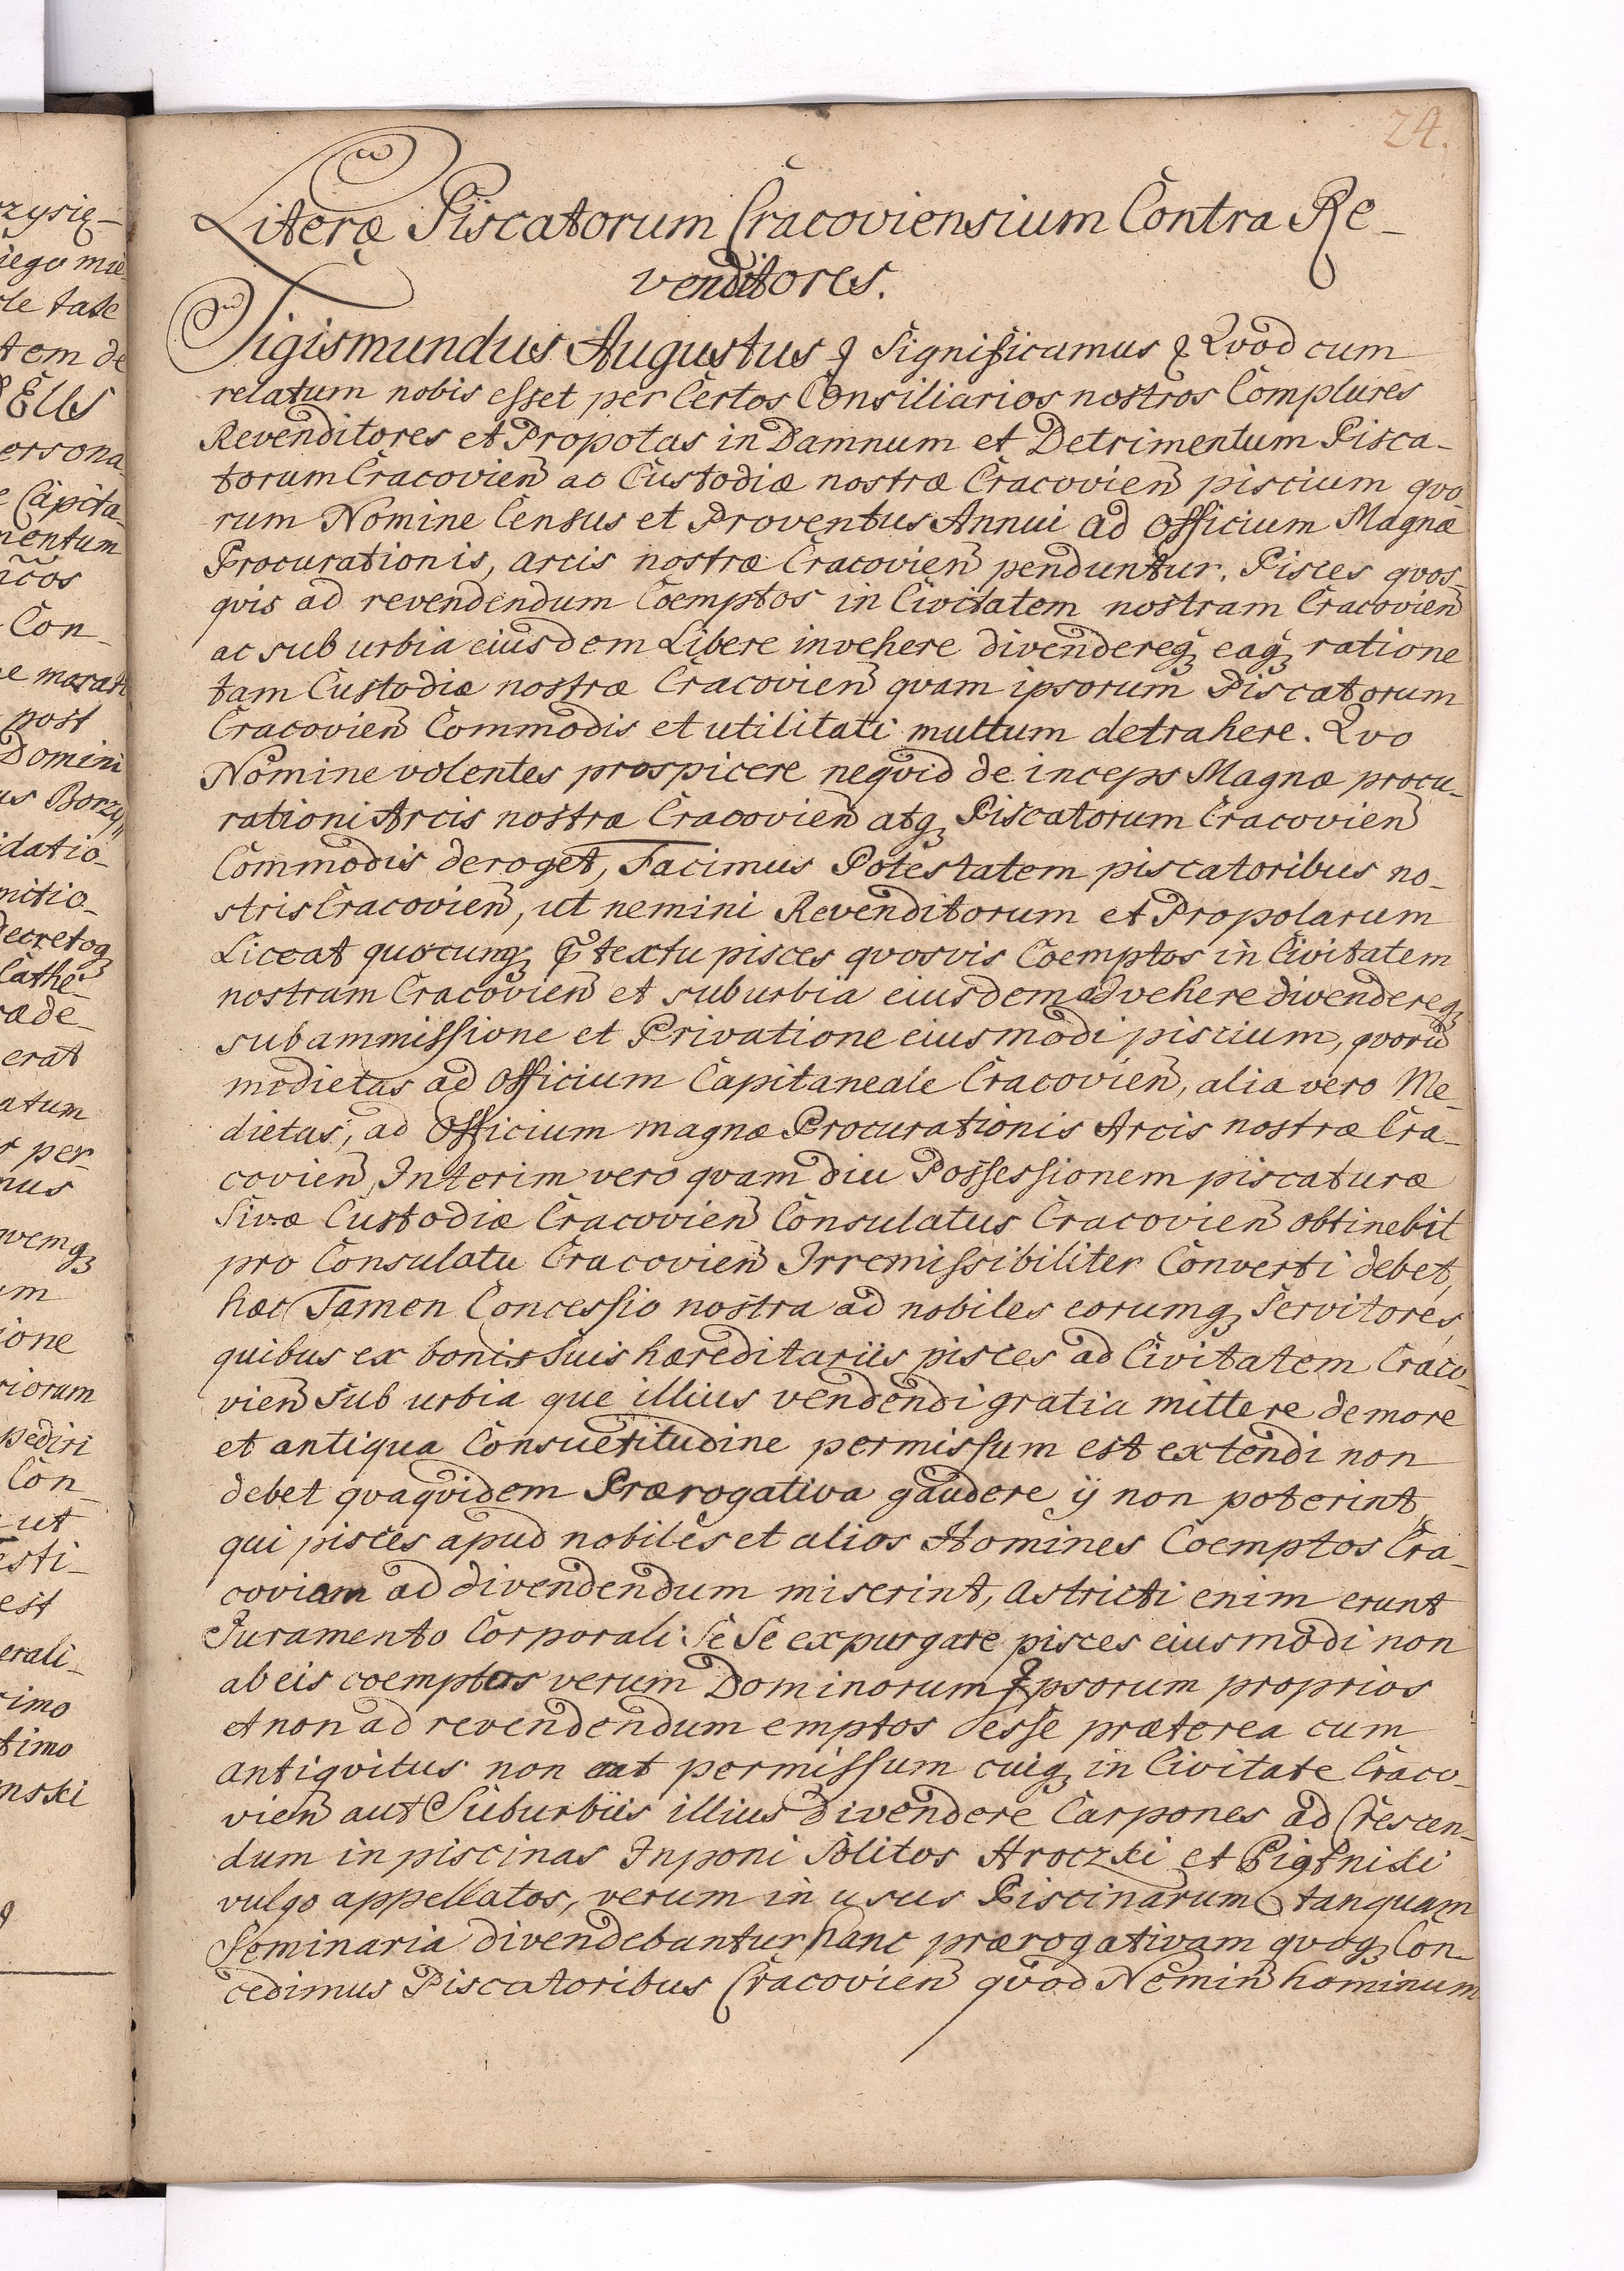 24.
Literæ Piscatorum Cracoviensium Contra Re-
venditores.
Sigismundus Augustus Significamus Qvod cum
relatum nobis esset per Certos Consiliarios nostros Complures
Revenditores et Propotas in Damnum et Detrimentum Pisca-
torum Cracovien̄ ac Custodiæ nostræ Cracovien̄ piscium qvo
rum Nomine Census et Proventus Annui ad Officium Magnæ
Procurationis, arcis nostræ Cracovien̄ penduntur. Pisces qvos-
qvis ad revendendum Coemptos in Civitatem nostram Cracovien̄
ac sub urbia eiusdem Libere invehere divendereqꝫ eaqꝫ ratione
tam Custodiæ nostræ Cracovien̄ qvam ipsorum Piscatorum
Cracovien̄ Commodis et utilitati multum detrahere. Qvo
Nomine volentes prospicere neqvid de inceps Magnæ procu-
rationi Arcis nostræ Cracovien̄ atqꝫ Piscatorum Cracovien̄
Commodis deroget, Facimus Potestatem piscatoribus no-
stris Cracovien̄, ut nemini Revenditorum et Propolarum
Liceat quocunqꝫ p̄textu pisces qvosvis Coemptos in Civitatem
nostram Cracovien̄ et suburbia eiusdem advehere divendereqꝫ
sub ammissione et Privatione eiusmodi piscium, qvorū
medietas ad Officium Capitaneale Cracovien̄, alia vero Me-
dietas, ad Officium magnæ Procurationis Arcis nostræ Cra-
covien̄, Interim vero qvam diu Possessionem piscaturæ
Sivæ Custodiæ Cracovien̄ Consulatus Cracovien̄ obtinebit
pro Consulatu Cracovien̄ Irremissibiliter Converti debet,
hæc Tamen Concessio nostra ad nobiles eorumqꝫ Servitores,
quibus ex bonis Suis hæreditariis pisces ad Civitatem Craco-
vien̄ Sub urbia que illius vendendi gratia mittere de more
et antiqua Consuetitudine permissum est extendi non
debet qvaqvidem Prærogativa gaudere ij non poterint
qui pisces apud nobiles et alios Homines Coemptos Cra-
coviam ad divendendum miserint, astricti enim erunt
Juramento Corporali Se Se expurgare pisces eiusmodi non
ab eis coemptos verum Dominorum Ipsorum proprios
et non ad revendendum emptos esse præterea cum
antiqvitus non erat permissum cuiqꝫ in Civitate Craco-
vien̄ aut Suburbiis illius divendere Carpones ad Crescen-
dum in piscinas Inponi Solitos Kroczki et
vulgo appellatos, verum in usus Piscinarum tanquam
Seminaria divendebantur hanc prærogativam qvoqꝫ Con-
cedimus Piscatoribus Cracovien̄ qvod Nemin̄ hominum